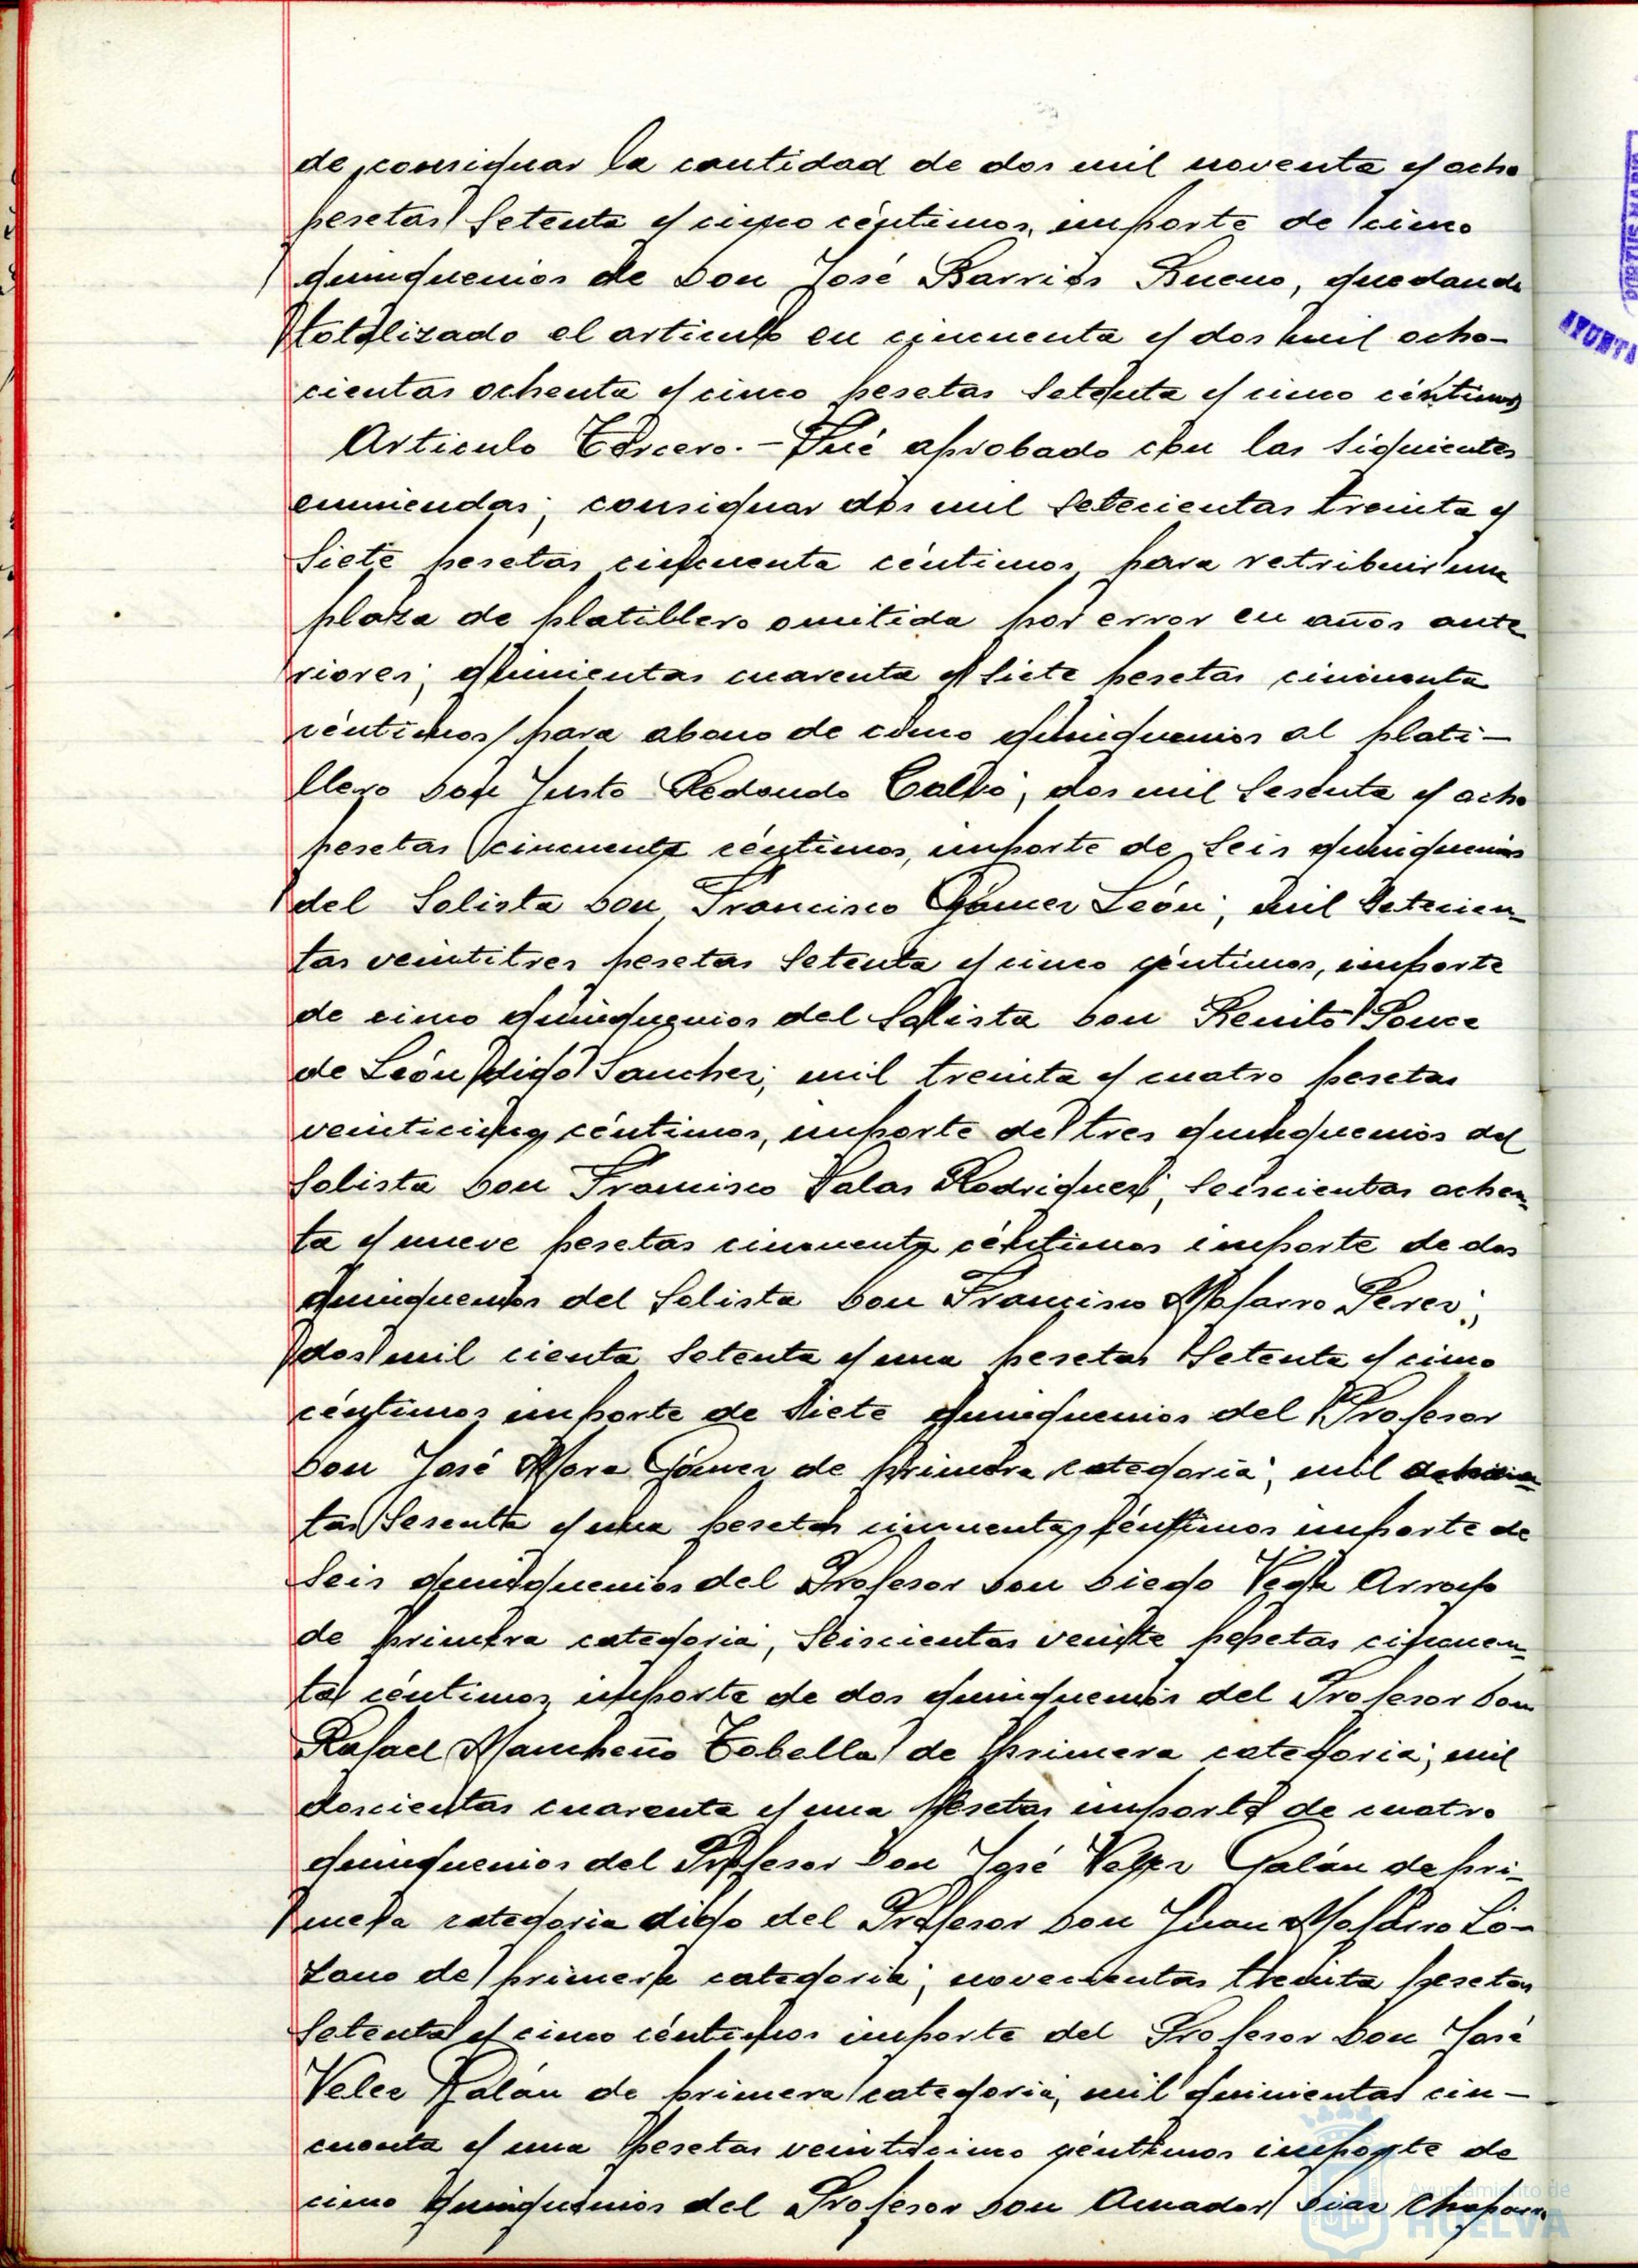 de consignar la cantidad de dos mil noventa y ocho
pesetas setenta y cinco céntimos, importe de cinco
quinquenios de Don José Barrios Bueno, quedando
totalizado el articulo en cincuenta y dos mil ocho-
cientas ochenta y cinco pesetas setenta y cinco céntimos
Articulo Tercero.- Fué aprobado con las siguientes
enmiendas; consignar dos mil setecientas treinta y
siete pesetas cincuenta céntimos para retribuir una
plaza de platillero omitida por error en años ante
riores; quinientas cuarenta y siete pesetas cincuenta
céntimos para abono de cinco quinquenios al plati-
llero Don Justo Redondo Calbo; dos mil sesenta y ocho
pesetas cincuenta céntimos, importe de seis quinquenios
del Solista Don Francisco Gómez León; mil setecien-
tas veintitres pesetas setenta y cinco céntimos, importe
de cinco quinquenios del Solista Don Benito Ponce
de León digo Sanchez; mil treinta y cuatro pesetas
veinticinco céntimos, importe de tres quinquenios del
Solista Don Francisco Salas Rodriguez; seiscientas ochen-
ta y nueve pesetas cincuenta céntimos importe de dos
quinquenios del Solista Don Francisco Mofarro Perez;
dos mil cienta setenta y una pesetas setenta y cinco
céntimos importe de siete quinquenios del Profesor
Don José Mora Gómez de primera categoria; mil
tas sesenta y una pesetas cincuenta céntimos importe de
seis quinquenios del Profesor Don Diego Vega Arroyo
de primera categoria, seiscientas veinte pesetas cincuen-
ta céntimos importe de dos quinquenios del Profesor Don
Rafael Mancheño Tobella de primera categoria; mil
doscientas cuarenta y una pesetas importe de cuatro
quinquenios del Profesor Don José Velez Galán de pri-
mera categoria digo del Profesor Don Juan Mofarro Lo-
zano de primera categoria; novecientas treinta pesetas
setenta y cinco céntimos importe del Profesor Don José
Velez Galán de primera categoria, mil quinientas cin-
cuenta y una pesetas veinticinco céntimos importe de
cinco quinquenios del Profesor Don Amador Diaz Chaparro
Ayuntamiento de
HUELVA
PORTUS MARIS
AYUNTA